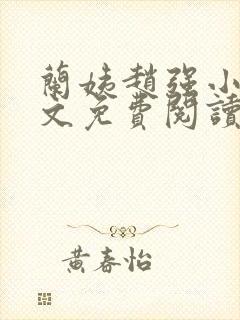 蘭姨趙強小
文免費閱讀
黃春怡